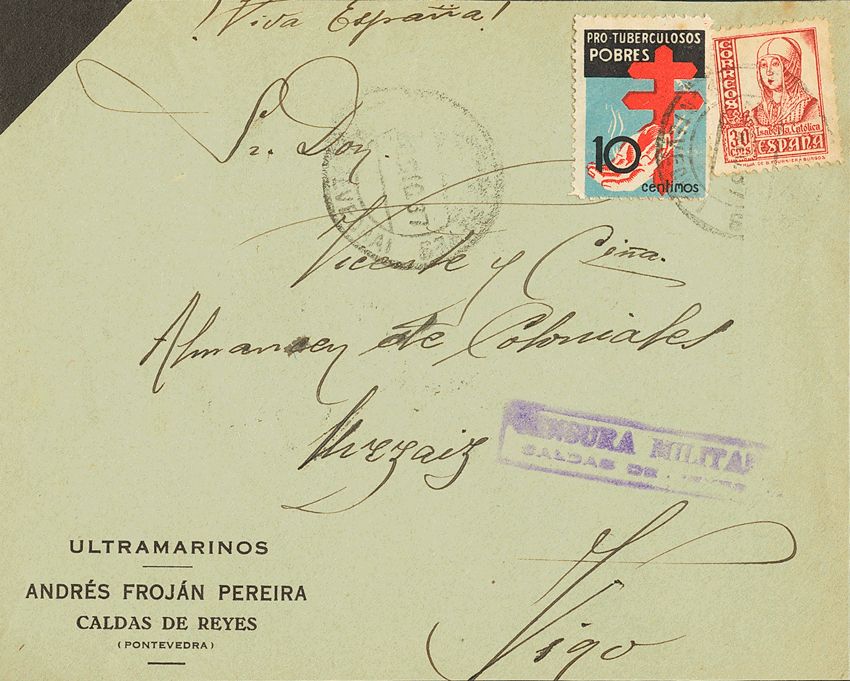 ¡Viva España!
PRO-TUBERCULOSOS
POBRES
10
centimos
CORREOS
30
cms
Isabel la Católica
ESPAÑA
Sr. Don
Vicente y Ciña.
Almancen de Coloniales
Urzaiz
Vigo
CENSURA MILITAR
CALDAS DE REYES
ULTRAMARINOS
ANDRÉS FROJÁN PEREIRA
CALDAS DE REYES
(PONTEVEDRA)